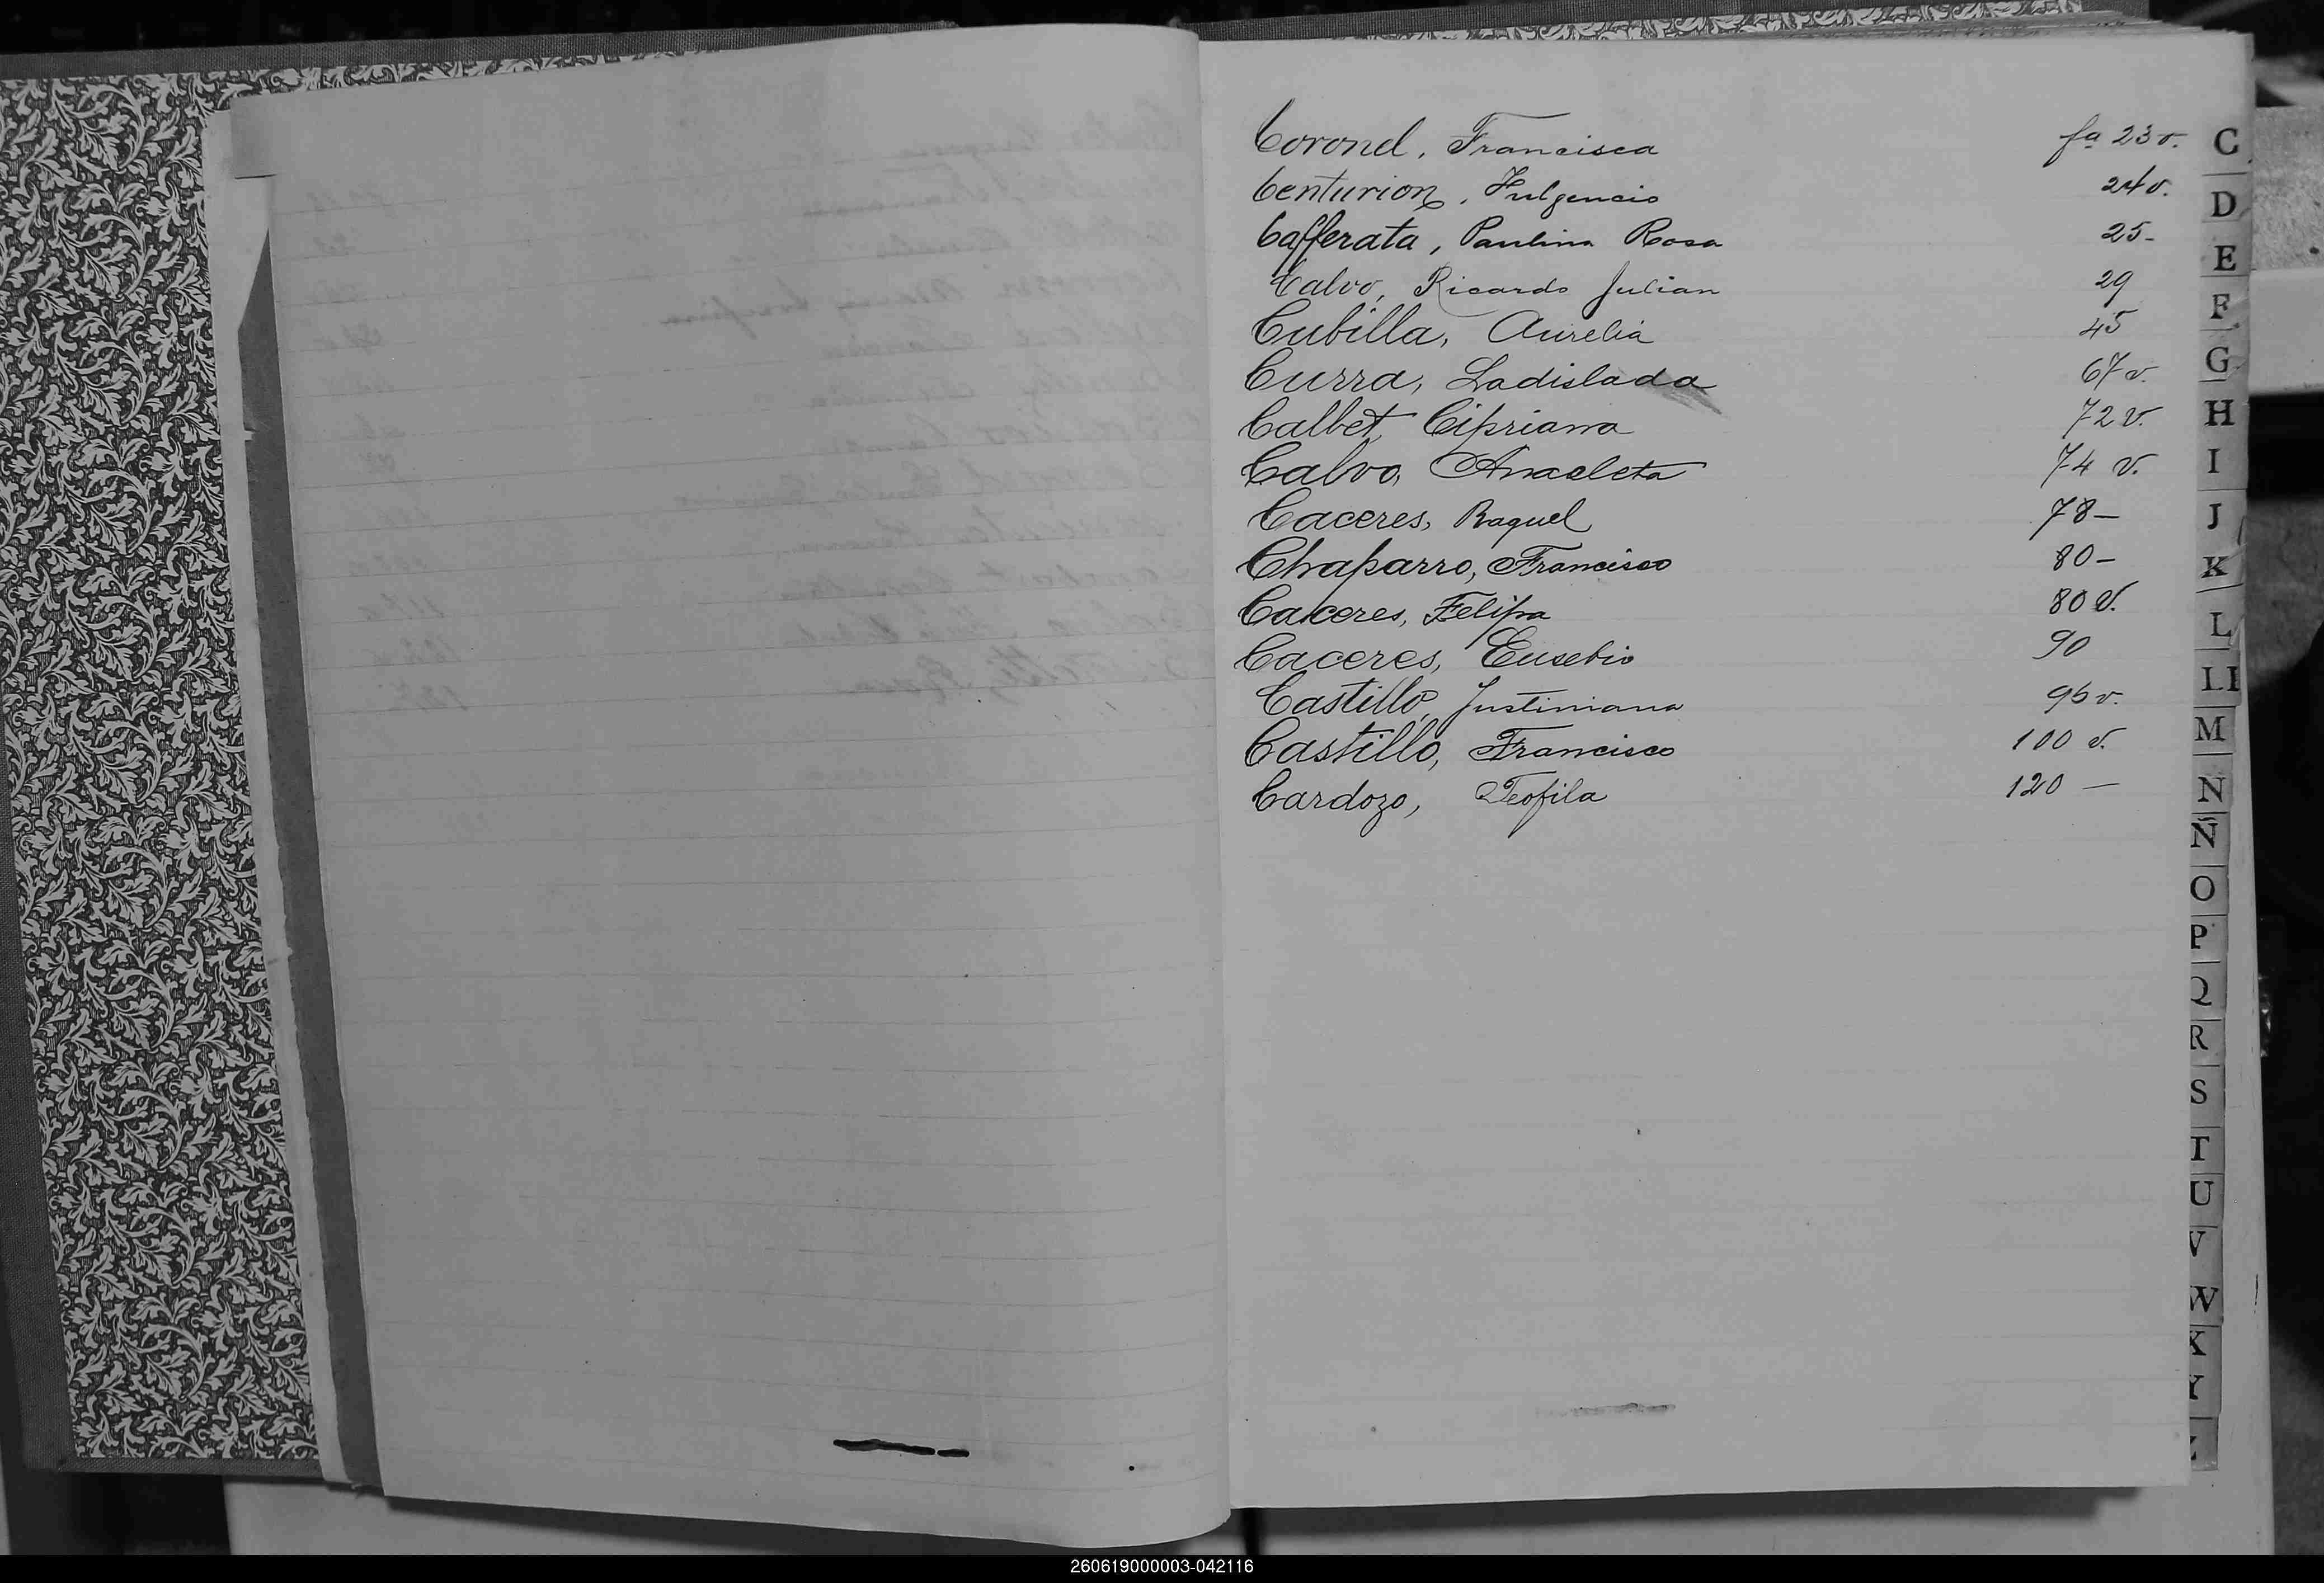 Coronel, Francisca fa 23 v.
Centurion, Fulgencio 24 v.
Cafferata, Paulina Rosa 25-
Calvo, Ricardo Julian 29
Cubilla, Aurelia 45
Curra, Ladislada 67 v.
Calbet, Cipriana 72 v.
Calvo, Anacleta 74 v.
Caceres, Raquel 78-
Chaparro, Francisco 80-
Caceres, Felipa 80 v.
Caceres, Eusebio 90
Castillo, Justiniana 96 v.
Castillo, Francisco 100 v.
Cardozo, Teofila 120 -
C
D
E
F
G
H
I
J
K
L
LI
M
N
Ñ
O
P
Q
R
S
T
U
V
W
X
Y
Z
260619000003-042116